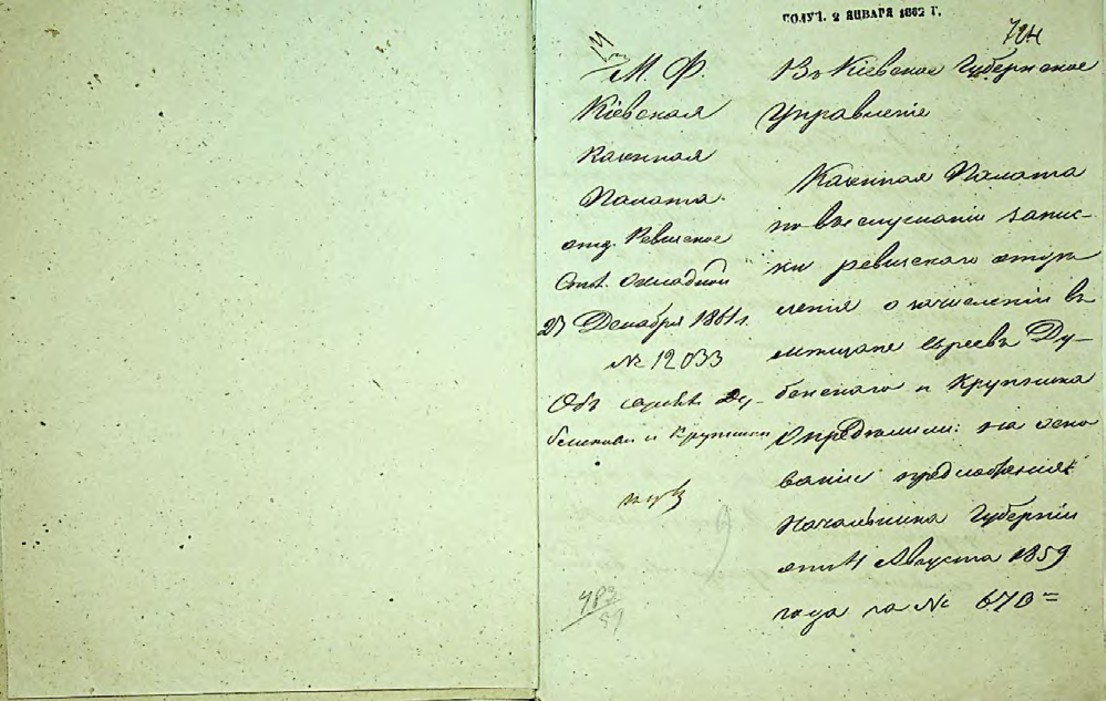 ПОЛУЧ. 2 ЯНВАРЯ 1862 Г.
М. Ф.
Кіевская
Казенная
Палата.
отд. Ревизское
Стол. Окладной
27 Декабря 1861 г.
№ 12033
Объ евреяхъ Ду-
бенскомъ и Крупника
Въ Кіевское Губернское
Управленіе
Казенная Палата
по выслушаніи запис-
ки ревизскаго отдѣ
ленія о зачисленіи въ
мѣщане евреевъ Ду-
бенскаго и Крупника
Опредѣлили: на осно
ваніи предложенія
Начальника Губерніи
отъ 4 Августа 1859
года за № 670=
482